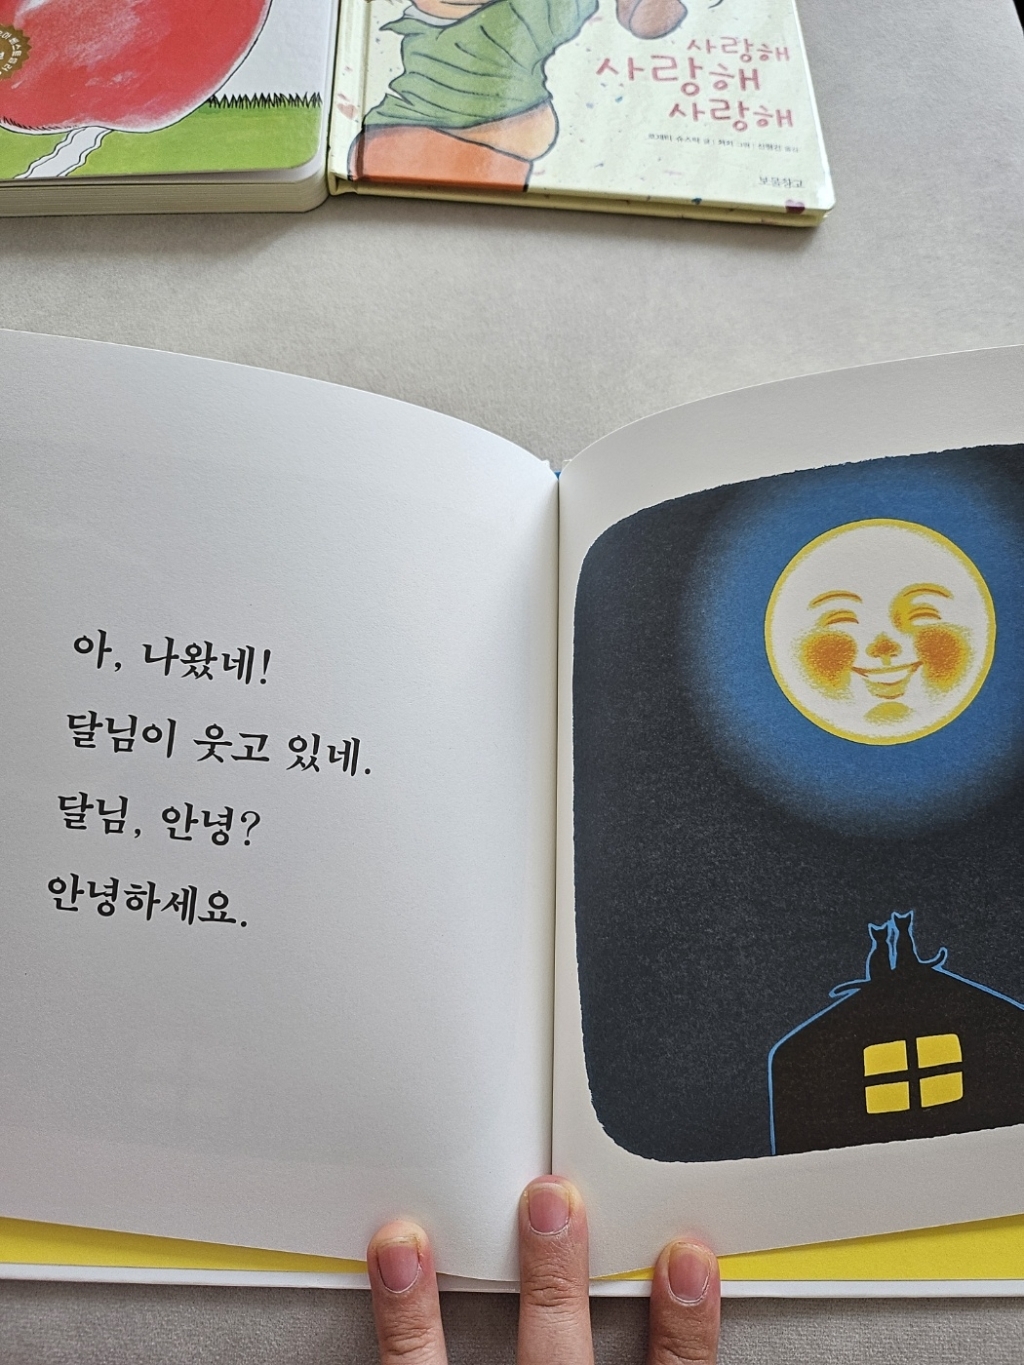 사랑해
사랑해
사랑해
보물창고
아, 나왔네!
달님이 웃고 있네.
달님, 안녕?
안녕하세요.